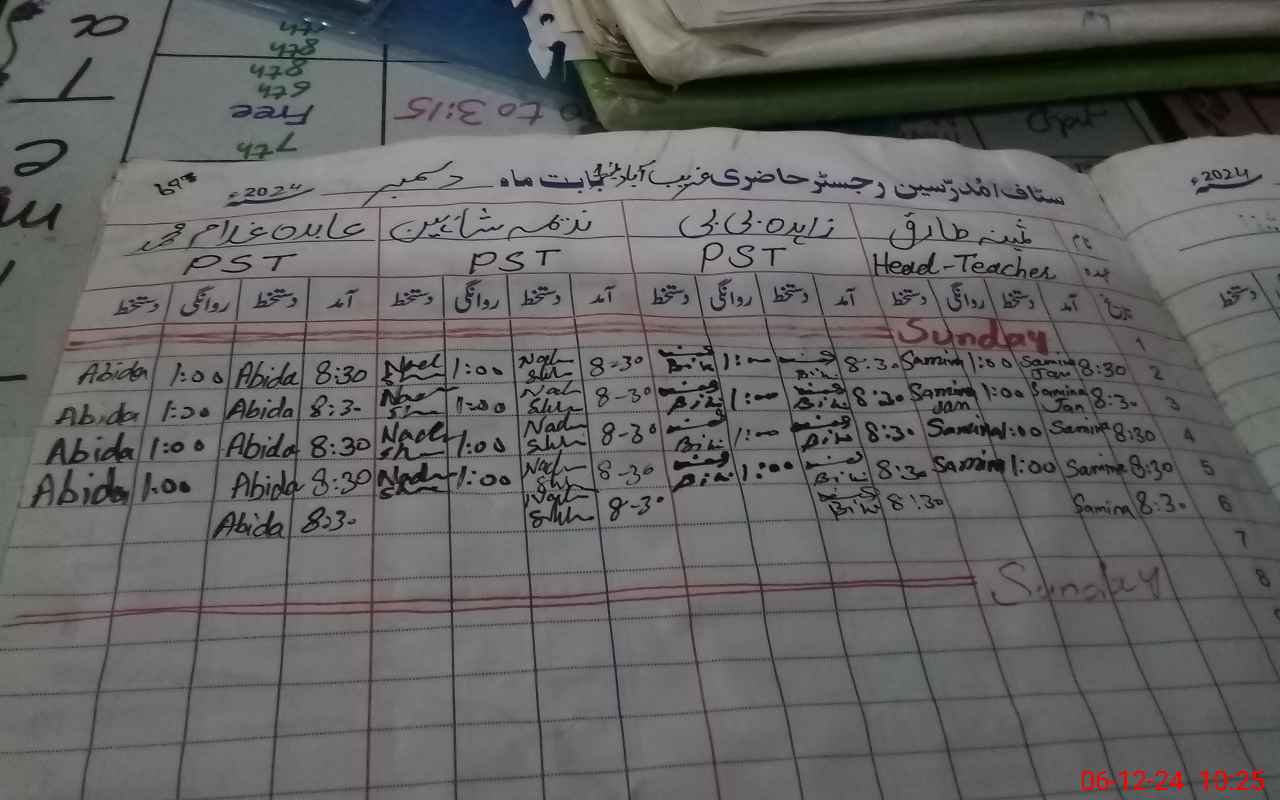 478
478
6th
Free
7th
to 3:15
Chart
2024ء
سٹاف / مدرسین رجسٹر حاضری غریب آباد بابت ماہ دسمبر 2024ء
نام ثمینہ طارق زاہدہ بی بی ندیمہ شاہین عابدہ غلام محمد
عہدہ Head-Teacher PST PST PST
تاریخ آمد دستخط روانگی دستخط آمد دستخط روانگی دستخط آمد دستخط روانگی دستخط آمد دستخط روانگی دستخط
1 Sunday
2 8:30 Samina Jan 1:00 Samina 8:30 1:00 8-30 1:00 8:30 Abida 1:00 Abida
3 8:30 Samina Jan 1:00 Samina Jan 8:30 1:00 8-30 1:00 8:30 Abida 1:00 Abida
4 8:30 Samina 1:00 Samina 8:30 1:00 8-30 1:00 8:30 Abida 1:00 Abida
5 8:30 Samina 1:00 Samina 8:30 1:00 8-30 1:00 8:30 Abida 1:00 Abida
6 8:30 Samina 8:30 8-30 8:30 Abida
7
8 Sunday
06-12-24 10:25